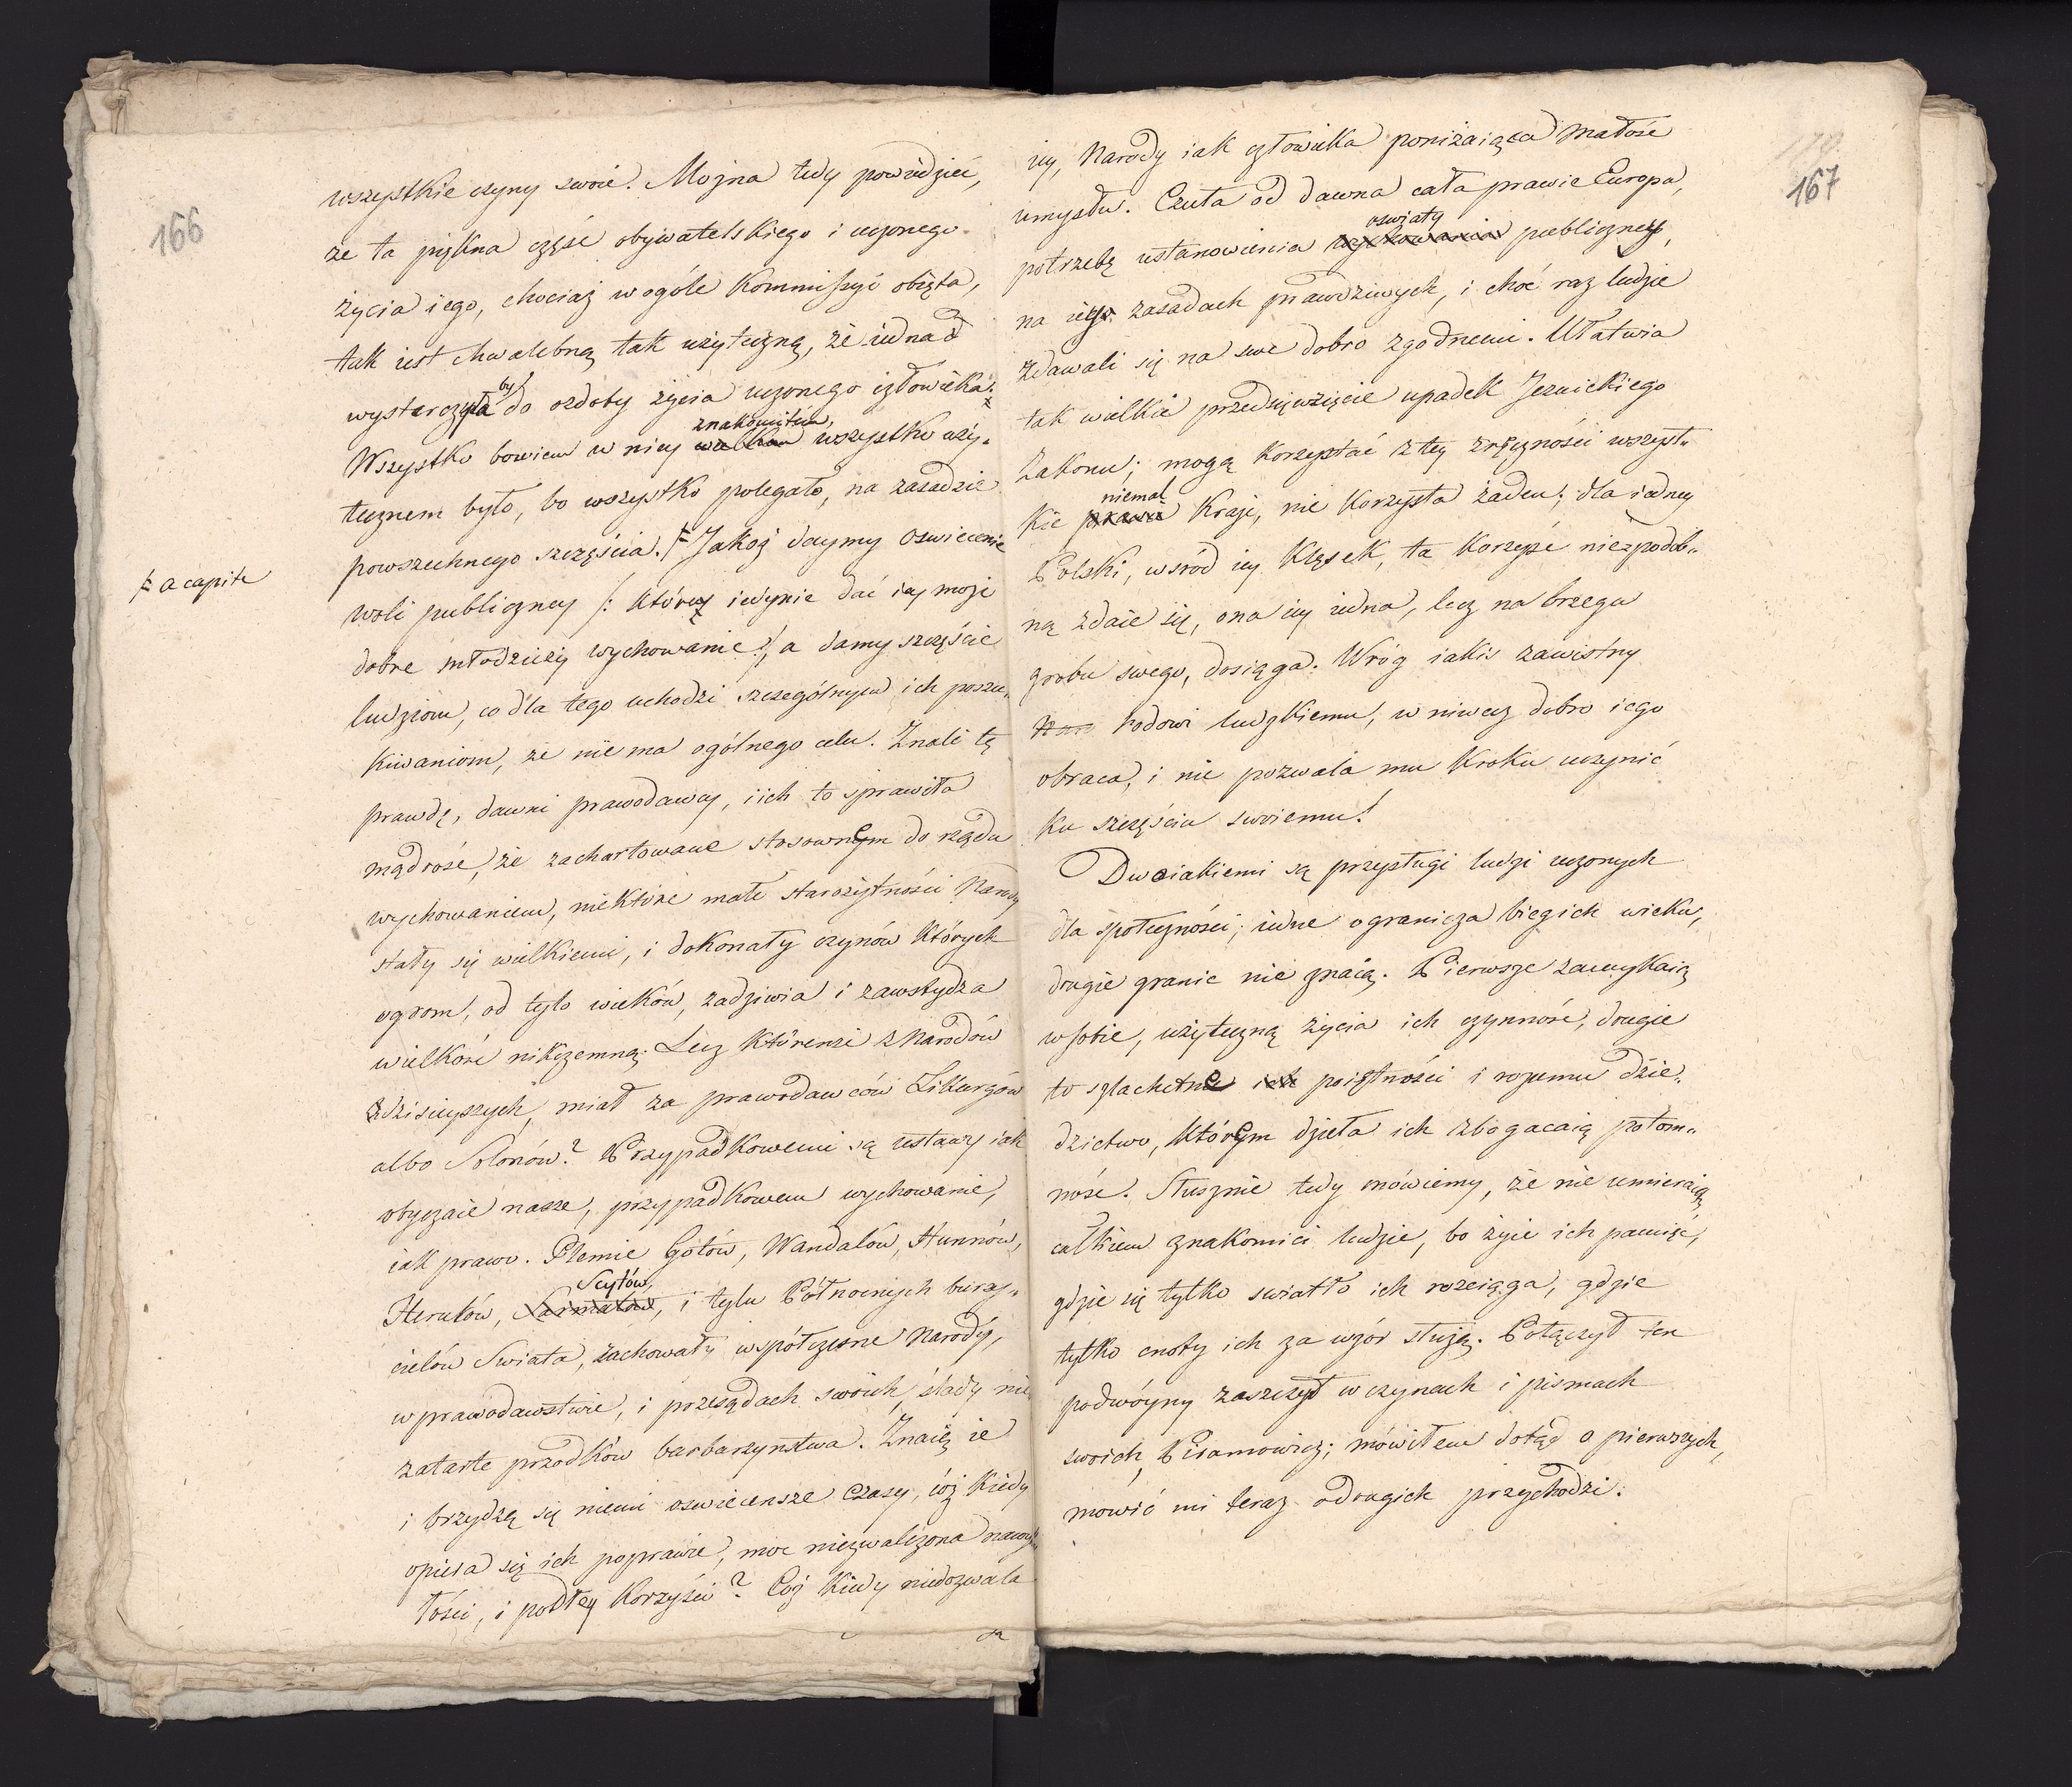 166
wszystkie czyny swoie. Można tedy powiedzieć,
że ta piękna część obywatelskiego i uczonego
życia iego, chociaż w ogóle Kommissyi obięta,
tak iest chwalebną tak użyteczną, że iedna
by
wystarczyła do ozdoby życia uczonego człowieka.
znakomitem,
Wszystko bowiem w niey wielkim wszystko uży„
tecznem było, bo wszystko polegało, na zasadzie
powszechnego szczęścia. ⁄= Jakoż daymy Oswiecenie
⁄= a capite
woli publiczney /: którą iedynie dać iey może
dobre młodzieży wychowanie :/, a damy szczęście
ludziom, co dla tego uchodzi szczególnym ich poszu„
kiwaniom, że niema ogólnego celu. Znali tę
prawdę, dawni prawodawcy, i ich to sprawiła
mądrość, że zachartowane stosownem do rządu
wychowaniem, niektóre małe starożytności Narody
stały się wielkiemi, i dokonały czynów których
ogrom, od tylo wieków, zadziwia i zawstydza
wielkość nikczemną. Lecz którenże z Narodów
dzisieyszych, miał za prawodawców Likurgów
albo Solonów? Przypadkowemi są ustawy iak
obyczaie nasze, przypadkowem wychowanie,
iak prawo. Plemie Gotów, Wandalów, Hunnów,
Scytów,
Herulów, Sarmatów, i tylu Północnych burzy„
cielów Swiata, zachowały współczesne Narody,
w prawodawstwie, i przesądach swoich, ślady nie
zatarte przodków barbarzynstwa. Znaią ie
i brzydzą się niemi oswiecensze czasy, cóż kiedy
opiera się ich poprawie, moc niezwalczona nawy„
łości, i podłey korzyści? Cóż kiedy niedozwala
167
iey, Narody iak człowieka poniżaiąca małość
umysłu. Czuła od dawna cała prawie Europa,
oswiaty
potrzebę ustanowienia wychowania publiczney,
na iey zasadach prawdziwych, i choć raz ludzie
zdawali się na swe dobro zgodnemi. Ułatwia
tak wielkie przedsięwzięcie upadek Jezuickiego
Zakonu; mogą korzystać z tey zręczności wszyst„
niemal
kie prawie Kraje, nie korzysta żaden; dla iedney
Polski, wsród iey klęsek, ta korzyść niezpodob„
ną zdaie się, ona iey iedna, lecz na brzegu
grobu swego, dosięga. Wróg iakis zawistny
rodowi ludzkiemu, w niwecz dobro iego
obraca, i nie pozwala mu kroku uczynić
ku szczęściu swoiemu!
Dwoiakiemi są przysługi ludzi uczonych
dla społeczności; iedne ogranicza bieg ich wieku,
drugie granic nie znaią. Pierwsze zamykaią
w sobie, użyteczną życia ich czynność, drugie
to szlachetne ich poiętności i rozumu dzie„
dzictwo, którem dzieła ich zbogacaią potom„
ność. Słusznie tedy mówiemy, że nie umieraią
całkiem znakomici ludzie, bo żyie ich pamięć,
gdzie się tylko swiatło ich rozciąga, gdzie
tylko cnoty ich za wzór służą. Połączył ten
podwóyny zaszczyt w czynach i pismach
swoich, Piramowicz; mówiłem dotąd o pierwszych,
mówić mi teraz o drugich przychodzi.